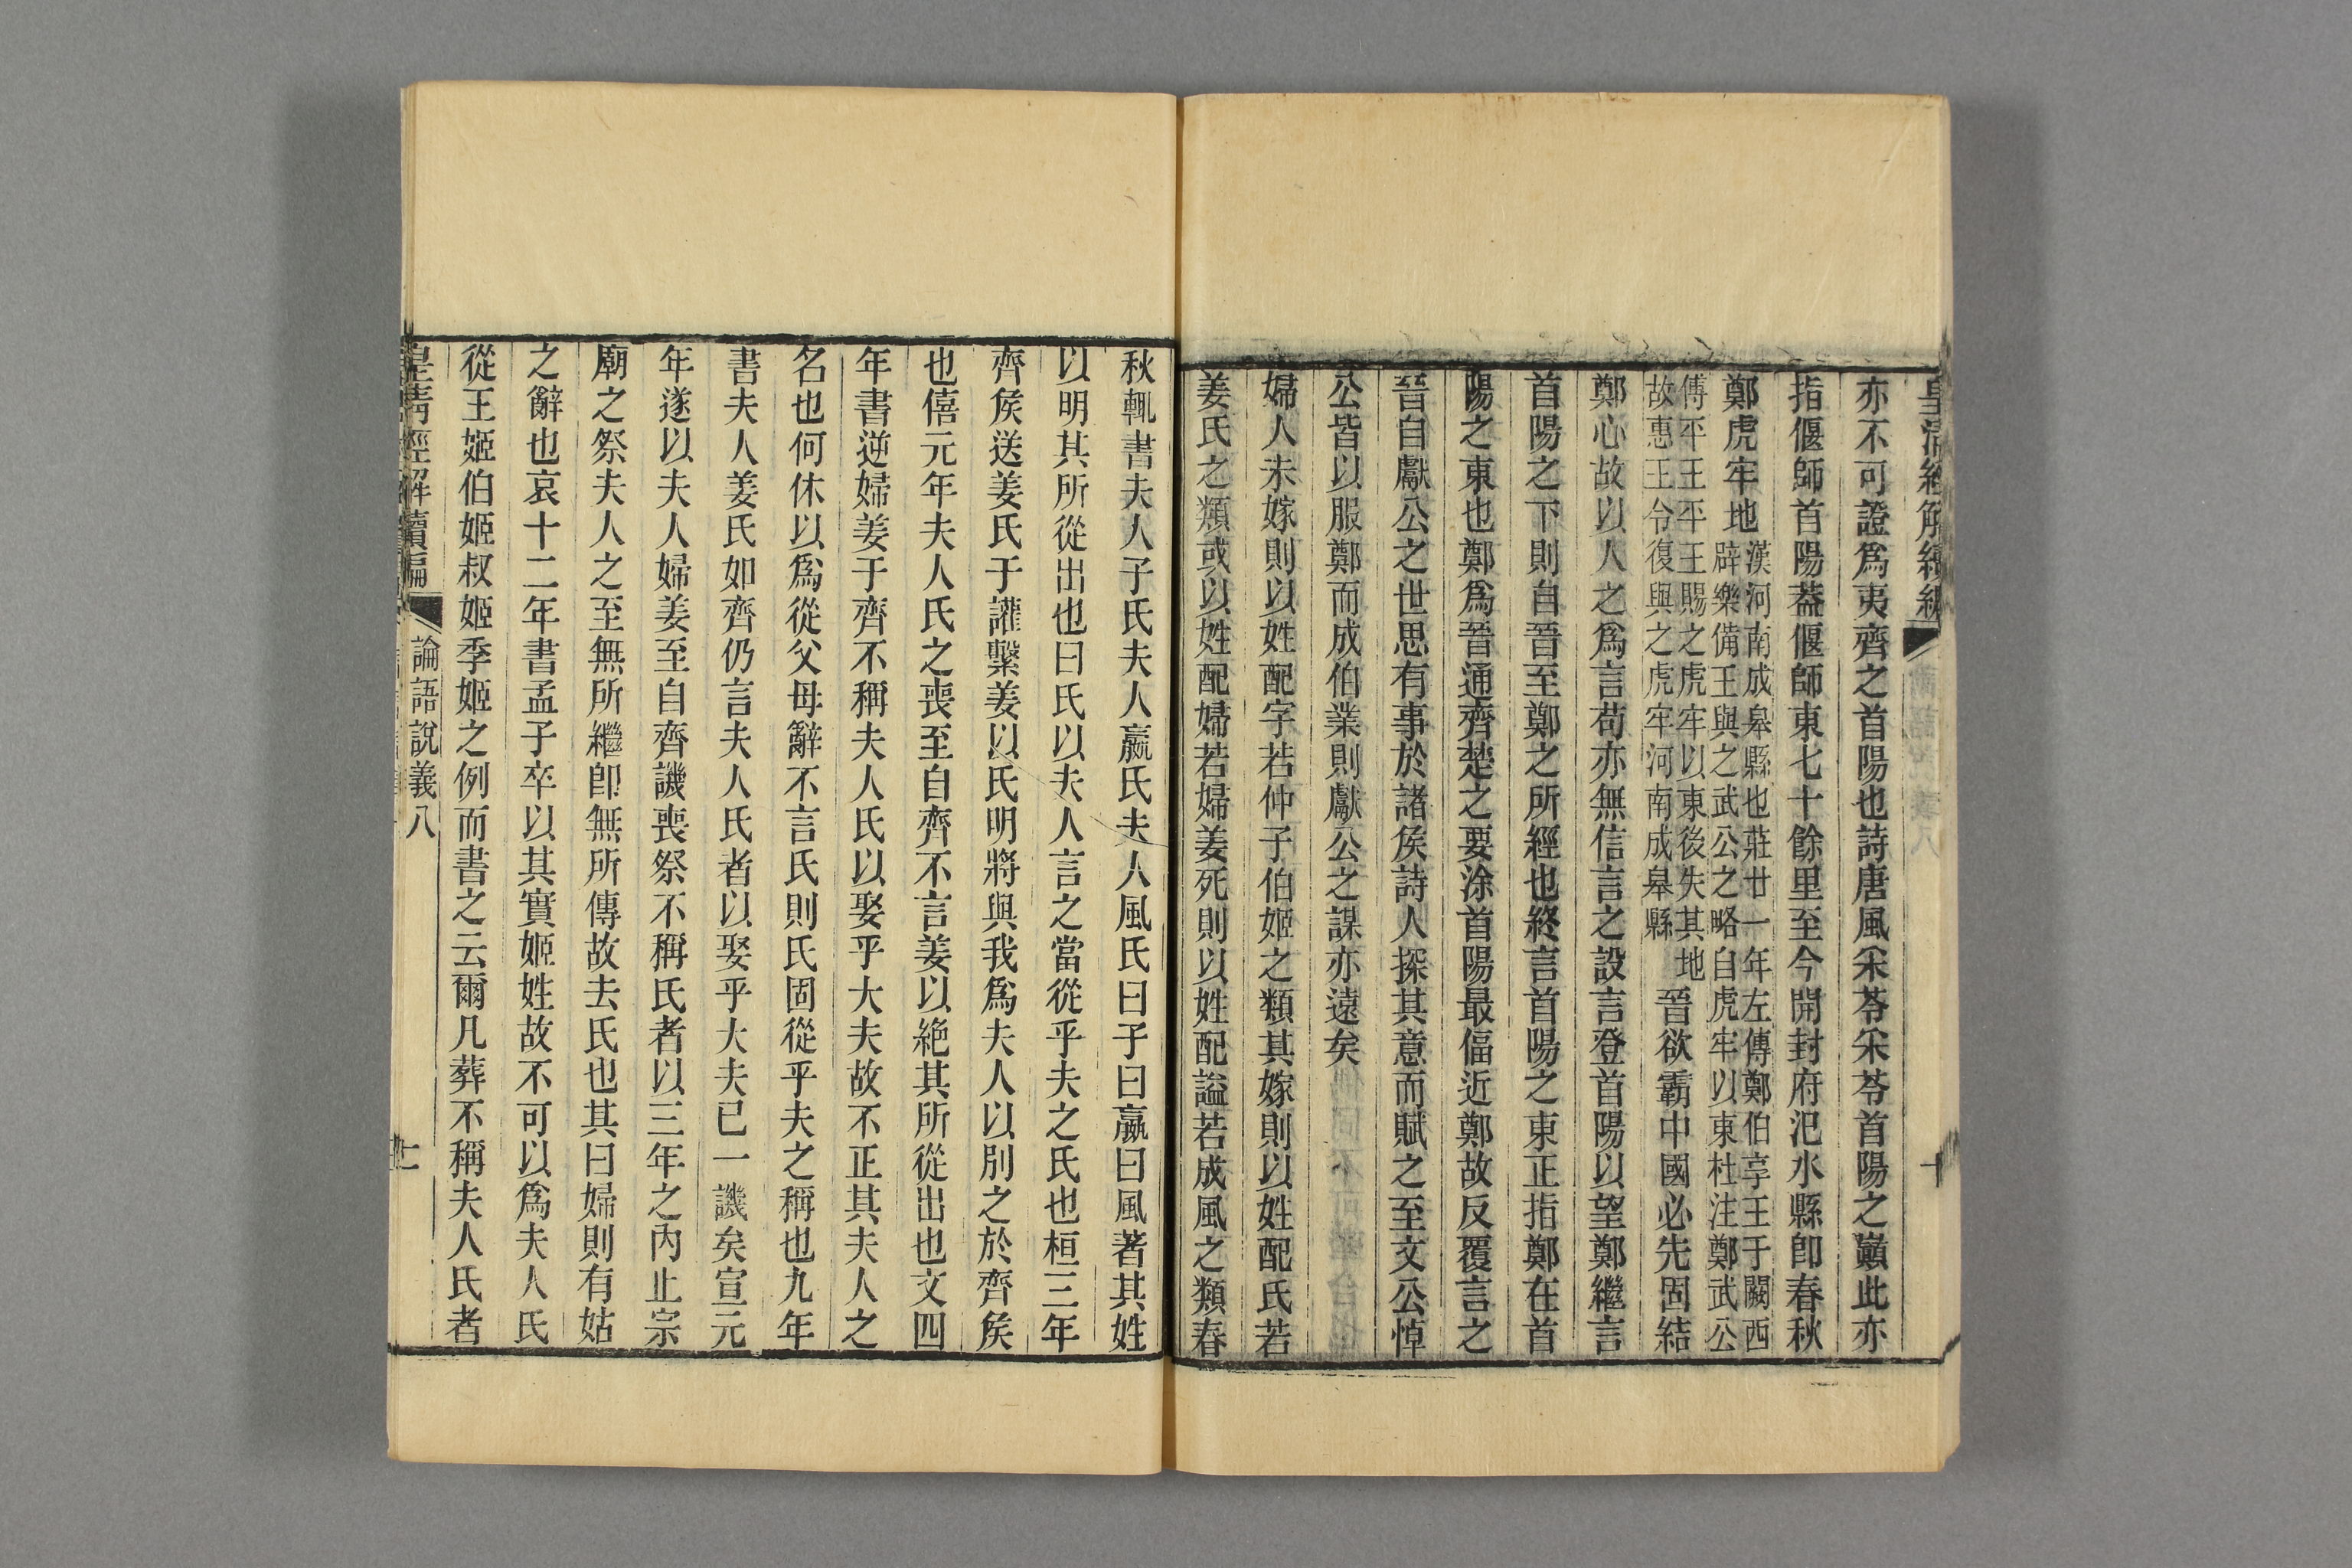 皇清經解續編
亦不可證爲夷齊之首陽也詩唐風采苓采苓首陽之巓此亦
指偃師首陽葢偃師東七十餘里至今開封府汜水縣卽春秋
鄭虎牢地漢河南成皋縣也莊廿一年左傳鄭伯享王于闕西
辟樂備王與之武公之略自虎牢以東杜注鄭武公
傅平王平王賜之虎牢以東後失其地
故惠王令復與之虎牢河南成皋縣
晉欲霸中國必先固結
鄭心故以人之爲言苟亦無信言之設言登首陽以望鄭繼言
首陽之下則自晉至鄭之所經也終言首陽之東正指鄭在首
陽之東也鄭爲晉通齊楚之要涂首陽最偪近鄭故反覆言之
晉自獻公之世思有事於諸矦詩人探其意而賦之至文公悼
公皆以服鄭而成伯業則獻公之謀亦遠矣
婦人未嫁則以姓配字若仲子伯姬之類其嫁則以姓配氏若
姜氏之類或以姓配婦若婦姜死則以姓配謚若成風之類春
秋輒書夫人子氏夫人嬴氏夫人風氏曰子曰嬴曰風著其姓
以明其所從出也曰氏以夫人言之當從乎夫之氏也桓三年
齊矦送姜氏于讙繫姜以氏明將與我爲夫人以別之於齊矦
也僖元年夫人氏之喪至自齊不言姜以絶其所從出也文四
年書逆婦姜于齊不稱夫人氏以娶乎大夫故不正其夫人之
名也何休以爲從父母辭不言氏則氏固從乎夫之稱也九年
書夫人姜氏如齊仍言夫人氏者以娶乎大夫已一譏矣宣元
年遂以夫人婦姜至自齊譏喪祭不稱氏者以三年之內止宗
廟之祭夫人之至無所繼卽無所傳故去氏也其曰婦則有姑
之辭也哀十二年書孟子卒以其實姬姓故不可以爲夫人氏
從王姬伯姬叔姬季姬之例而書之云爾凡葬不稱夫人氏者
皇清經解續編
論語說義八